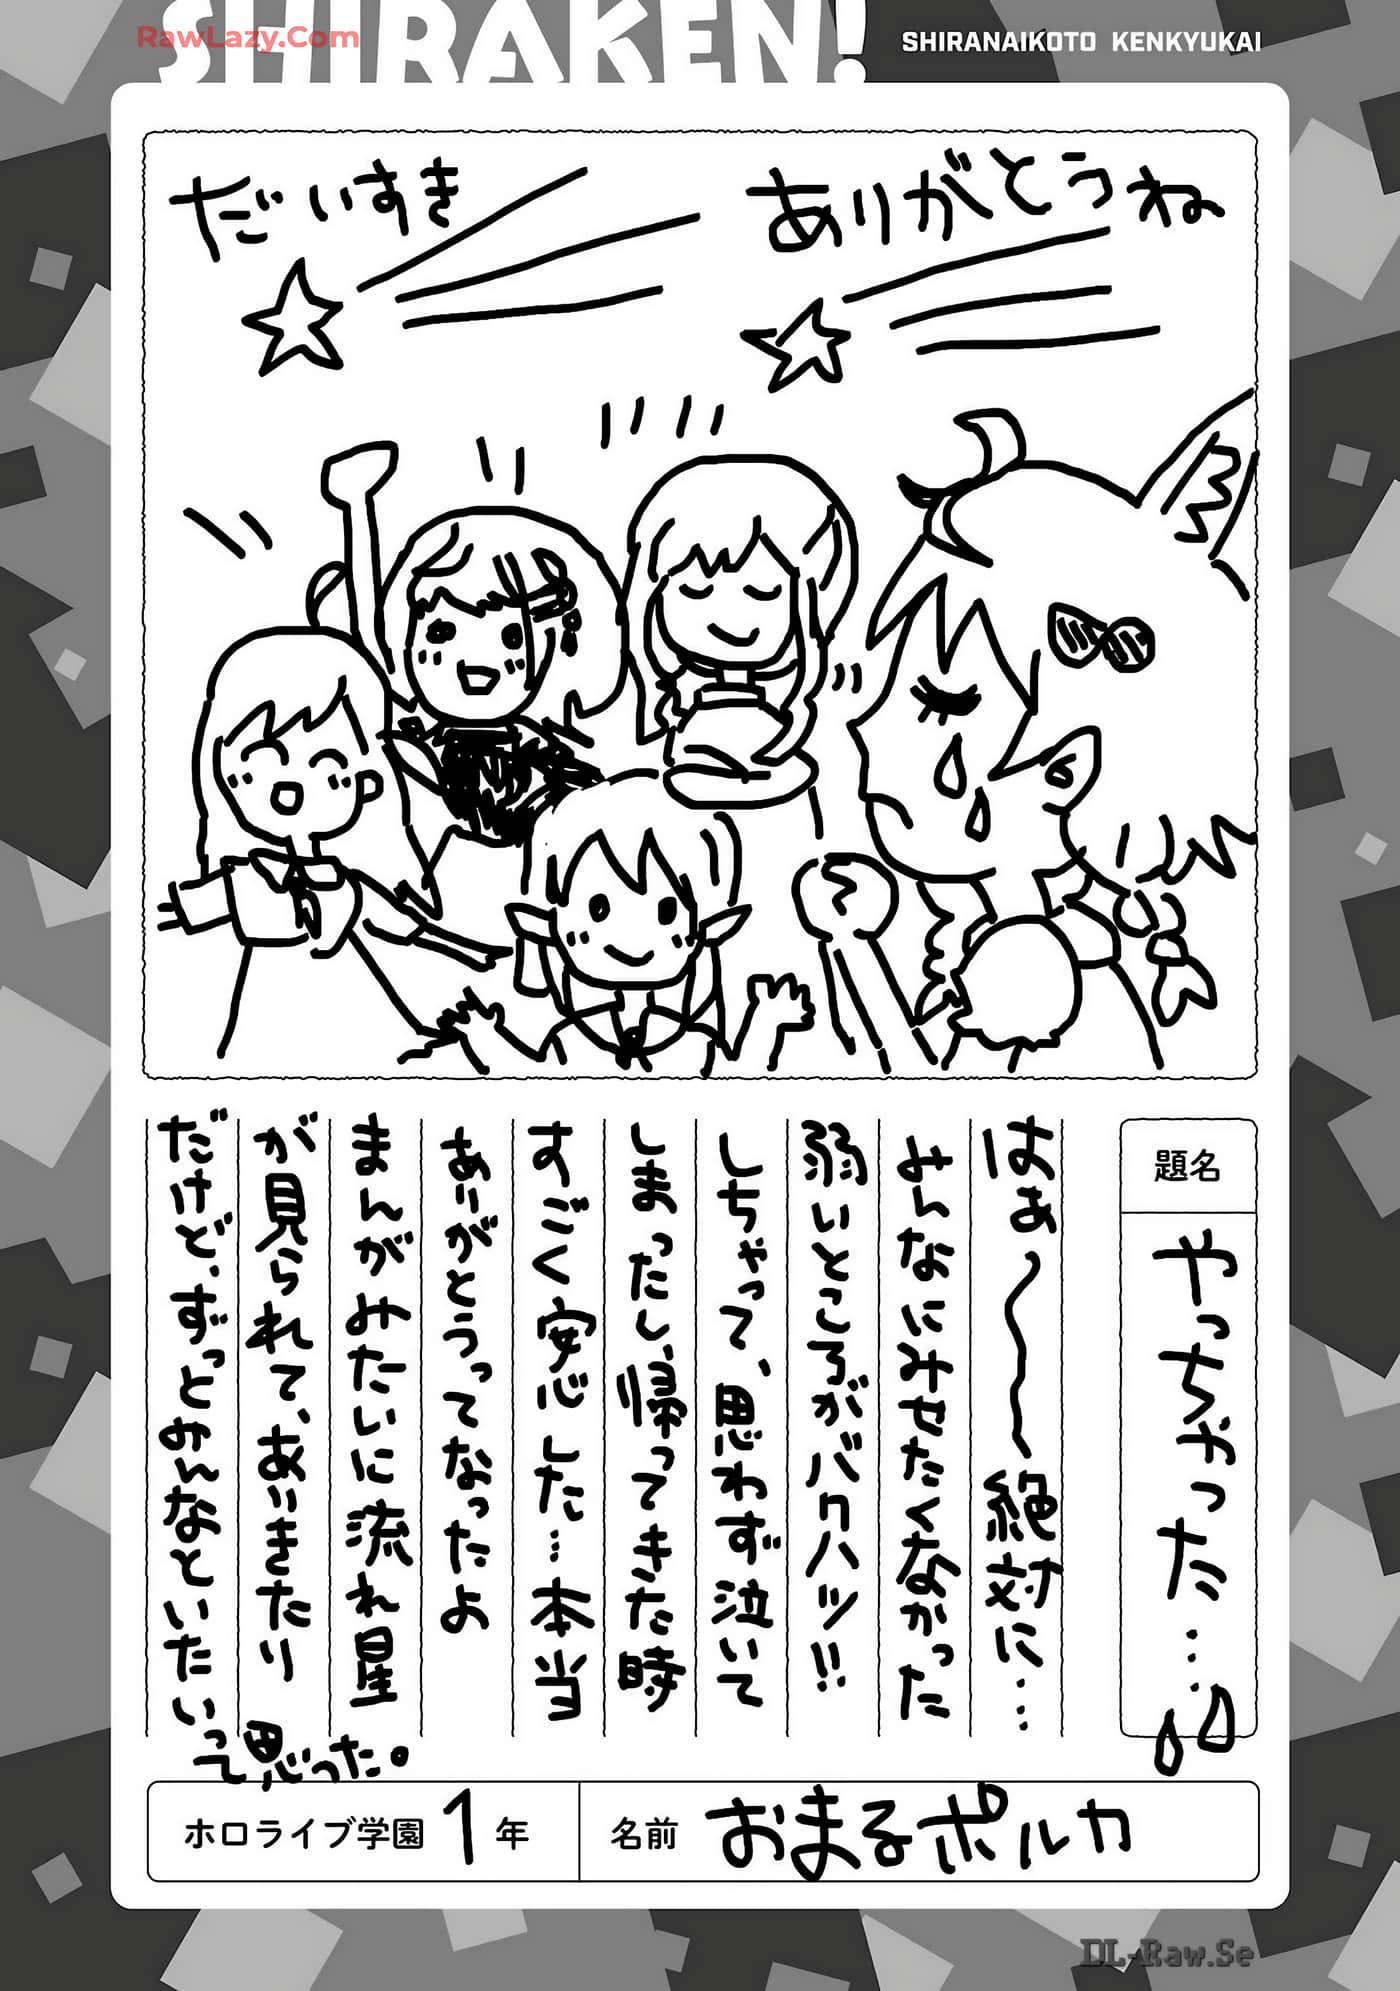 SHIRAKEN!
RawLazy.Com
SHIRANAIKOTO KENKYUKAI
だいすき
ありがとうね
題名
やっちゃった…
はぁ〜絶対に…
みんなにみせたくなかった
弱いところがバクハツ!!
しちゃって、思わず泣いて
しまったし、帰ってきた時
すごく安心した…本当
ありがとうってなったよ
まんがみたいに流れ星
が見られて、ありきたり
だけど、ずっとみんなといたいって思った。
ホロライブ学園 1年
名前 おまるポルカ
DL-Raw.Se